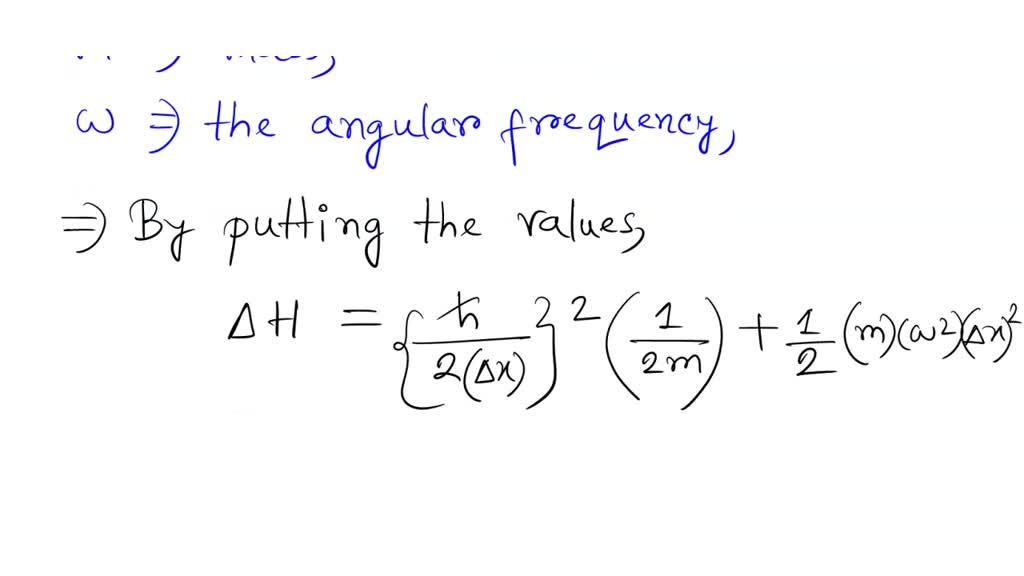 ω ⇒ the angular frequency,
⇒ By putting the values,
ΔH = {ħ/2(Δx)}² (1/2m) + 1/2 (m)(ω²)(Δx)²